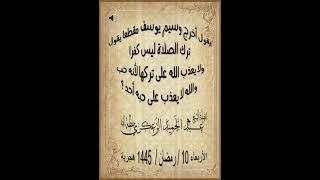 يقول أخرج وسيم يوسف مقطعا يقول
ترك الصلاة ليس كفرا
ولا يعذب الله على تركها لله حب
والله لا يعذب على حبه أحد ؟
الأربعاء 10 / رمضان / 1445 هجرية